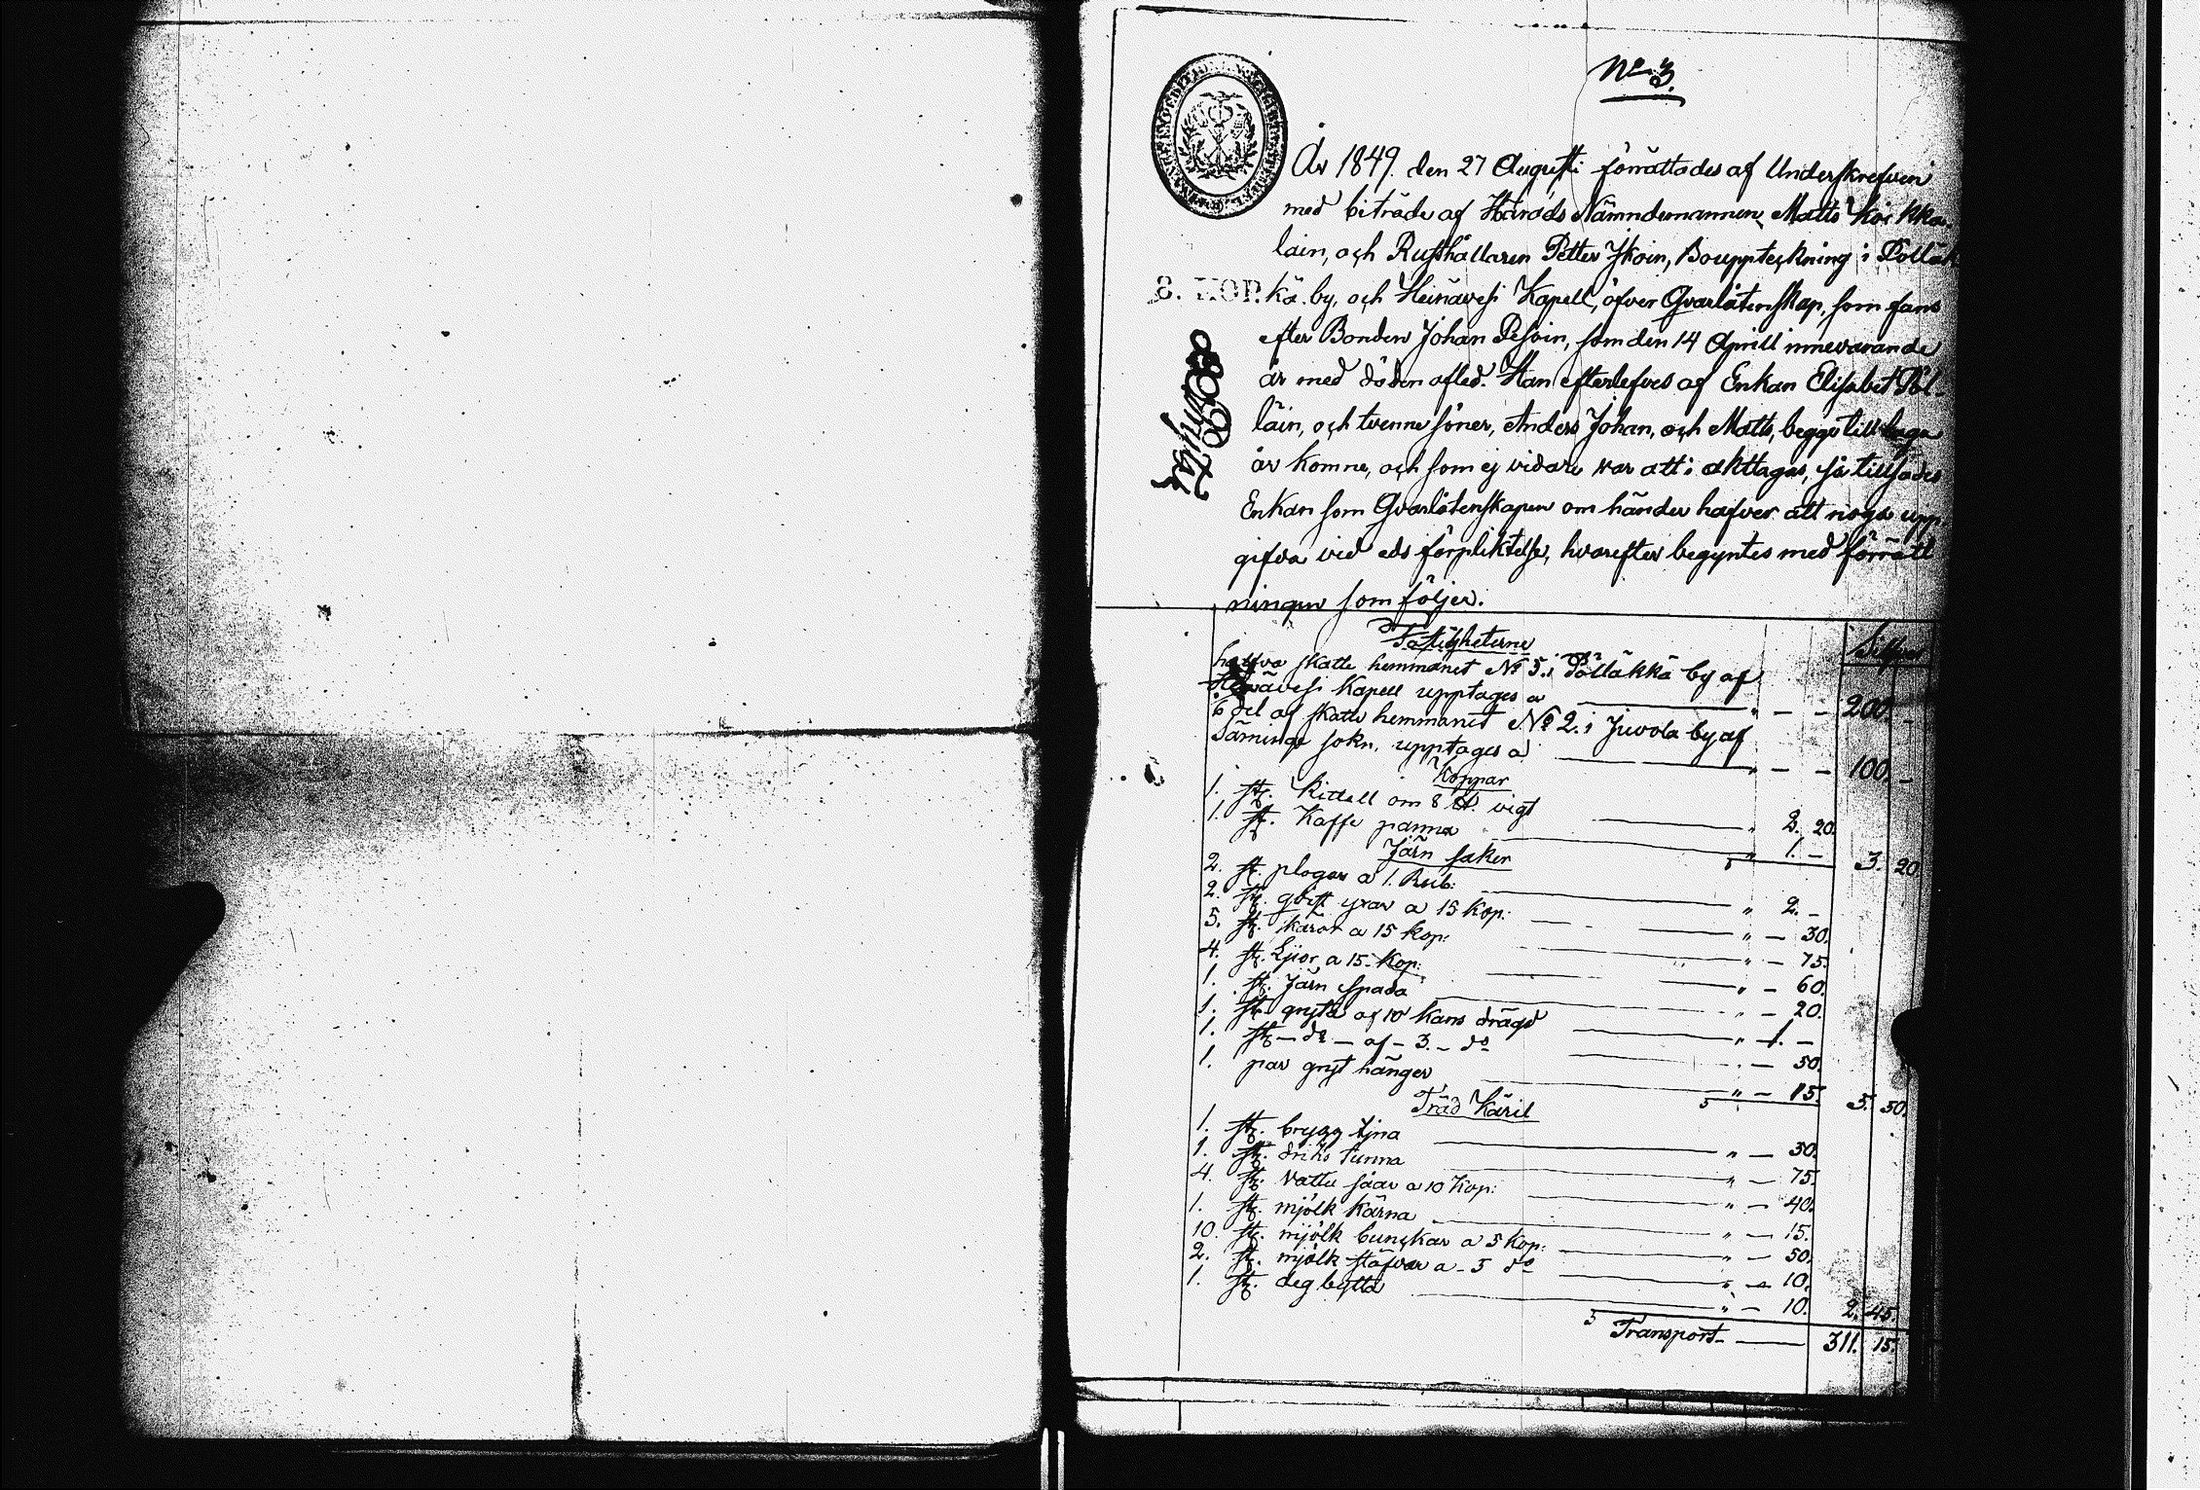 No 3.
År 1849. den 27 Augusti förrättades af Underskrefven
med biträde af Härads Nämndemannen Matts Kokka-
lain, och Rusthållaren Petter Ikoin, Bouppteckning i Pölläk
8. KOP. kä by, och Heinävesi Kapell, öfver Qvarlåtenskap, som fans
efter Bonden Johan Pesoin, som den 14 Aprill innevarande
år med döden afled. Han efterlefves af Enkan Elisabet Pöl-
läin, och tvenne söner, Anders Johan, och Matts, begge till laga
år komne, och som ej vidare var att i akttagas, så tillsades
Enkan som Qvarlåtenskapen om händer hafver att noga upp
gifva vid eds förpliktelse, hvarefter begyntes med förrätt
ningen som följer.
Fastigheterne Silfver
halfva skatte hemmanet No 5. i Pölläkkä by af
Heinävesi Kapell upptages a " — — 200. —
6 del af skatte hemmanet No 2. i Juvola by af
Säminge sokn. upptages a " — — 100. —
Koppar
1. st. Kittell om 8 ℔. vigt " 2. 20.
1. st. Kaffe panna " 1. — 3. 20.
Järn saker
2. st. plogar a 1. Rub: " 2. —
2. st. qvist yxar a 15 Kop: " — 30.
5. st. skäror a 15 kop: " — 75.
4. st. Ljior a 15 Kop: " — 60.
1. st. Järn spada " — 20.
1. st. gryta af 10 kans drägd " 1. —
1. st. — do — af — 3. — do " — 50.
1. par gryt hänger " — 15. 5. 50.
Träd Käril
1. st. brygg tjna " — 30.
1. st. driks tunna " — 75.
4. st. vattu såar a 10 Kop: " — 40.
1. st. mjölk kärna " — 15.
10. st. mjölk bunckar a 5 Kop: " — 50.
2. st. mjölk stäfvar a — 5 do " — 10.
1. st. deg bytta " — 10. 2. 45.
Transport — 311. 15.